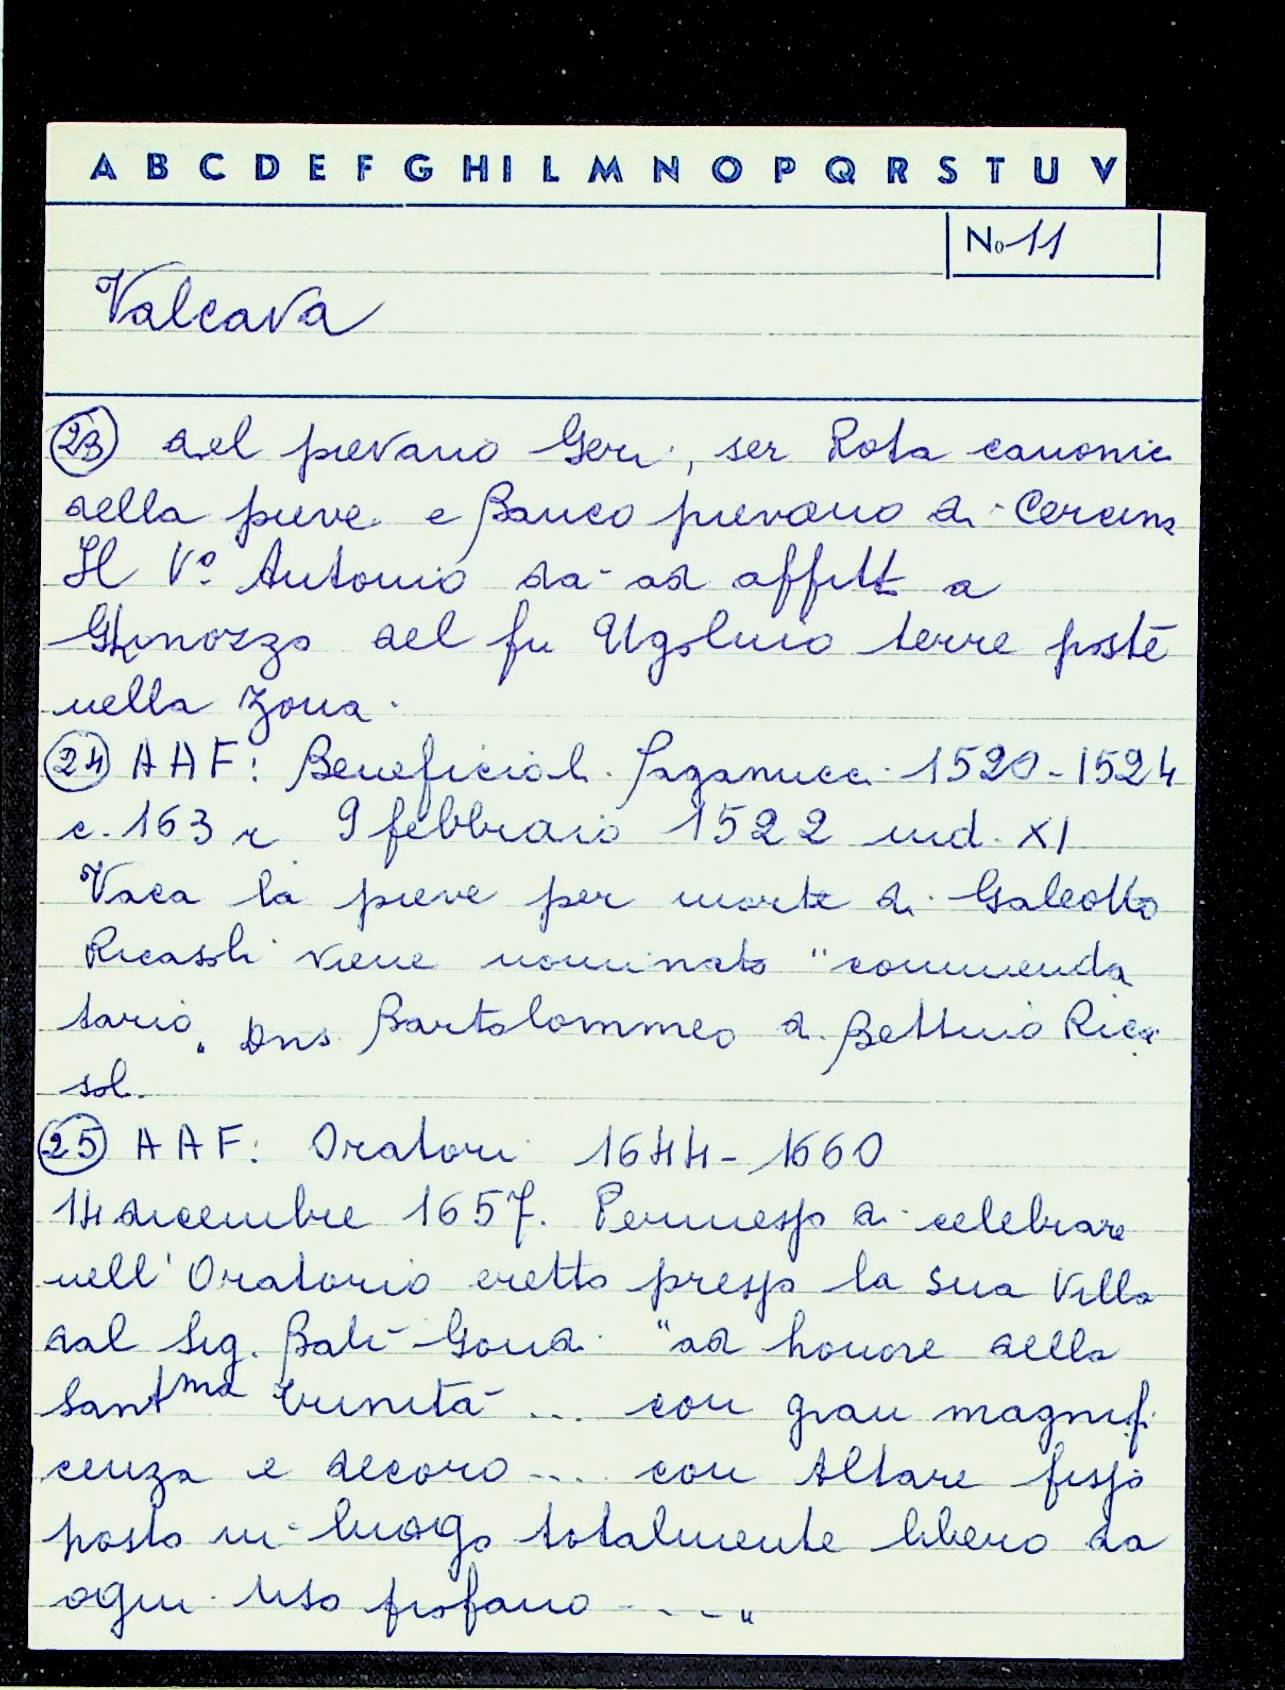 A B C D E F G H I L M N O P Q R S T U V
No 11
Valcava
23 del pievano Geri, ser Rota canonic
della pieve e Banco pievano di Cercina
Il V° Antonio dà ad affitt a
Ghinozzo del fu Ugolino terre poste
nella zona.
24 AAF: Beneficiali Paganucci 1520-1524
c. 163 r 9 febbraio 1522 ind. XI
Vaca la pieve per morte di Galeotto
Ricasoli viene nominato "commenda
tario" Dns Bartolommeo di Bettino Rica
soli.
25 AAF: Oratori 1644-1660
14 dicembre 1657. Permesso di celebrare
nell'Oratorio eretto presso la sua Villa
dal Sig. Balì Gondi "ad honore della
Santma Trinità ... con gran magnifi
cenza e decoro ... con Altare fisso
posto in luogo totalmente libero da
ogni uso profano ...."